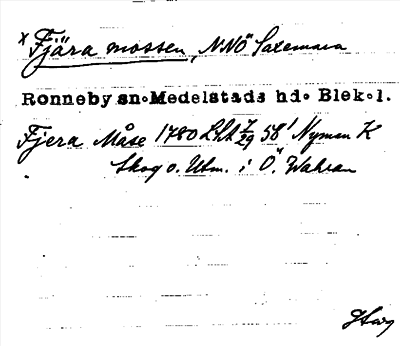 x Fjära mossen, NNÖ Saxemara
Ronneby sn. Medelstads hd. Blek. l.
Fjera Måse 1780 LSA 7/29 58' Nyman K
Skog o. Utm. i Ö. Wahran